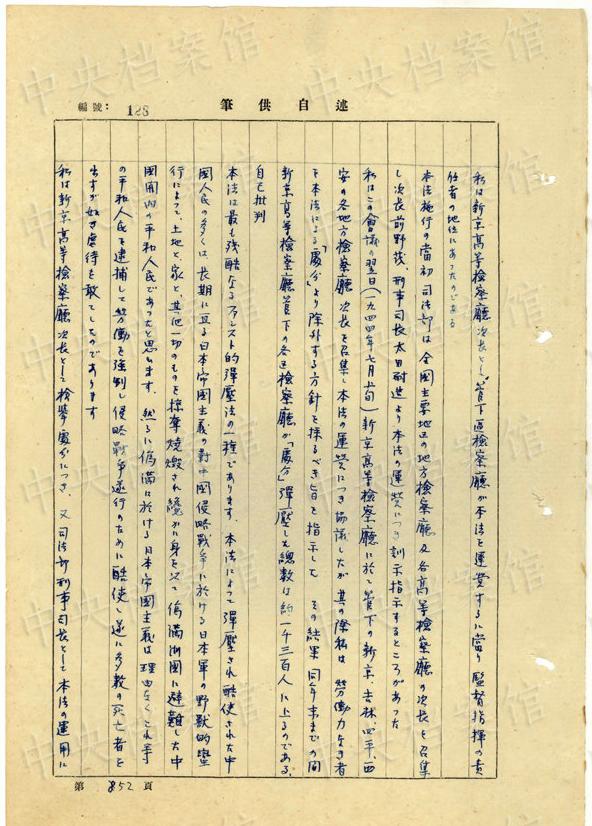 編號： 128
筆供自述
私は新京高等検察廳次長として、管下區検察廳が本法を運営するに當り監督指揮の責
任者の地位にあったのである
本法施行の當初司法部は全國主要地区の地方検察廳及各高等検察廳の次長を召集
し次長前野茂、刑事司長太田耐造より本法の運営につき訓示指示するところがあった
私はこの會議の翌日(一九四四年七月上旬)新京高等検察廳に於て管下の新京、吉林、四平、西
安の各地方検察廳次長を召集し本法の運営につき協議したが其の際私は労働力なき者
を本法による「處分」より除外する方針を採るべき旨を指示した その結果同年末までの間
新京高等検察廳管下の各区検察廳が「處分」彈圧した総数は約一千三百人に上るのである、
自己批判
本法は最も残酷なるファシスト的彈壓法の一種であります、本法によって彈壓され酷使された中
國人民の多くは、長期に亘る日本帝國主義の對中國侵略戦争に於ける日本軍の野獣的蛮
行によって、土地と家と其他一切のものを掠奪焼燬され纔かに身を以て偽満洲國に避難した中
國関内の平和人民であったと思ひます、然るに偽満に於ける日本帝國主義は理由なくこれ等
の平和人民を逮捕して労働を強制し侵略戦争遂行のために酷使し遂に多数の死亡者を
出すが如き虐待を敢てしたのであります
私は新京高等検察廳次長として検挙處分につき、又司法部刑事司長として本法の運用に
第 852 頁
中央档案馆